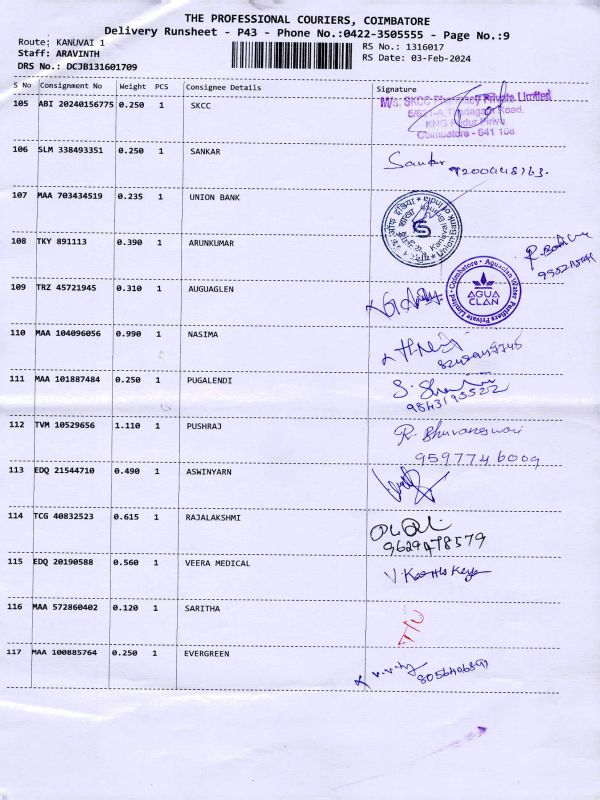 THE PROFESSIONAL COURIERS, COIMBATORE
Delivery Runsheet - P43 - Phone No.:0422-3505555 - Page No.:9
Route: KANUVAI 1
RS No.: 1316017
Staff: ARAVINTH
RS Date: 03-Feb-2024
DRS No.: DCJB131601709
S No Consignment No Weight PCS Consignee Details Signature
105 ABI 20240156775 0.250 1 SKCC
M/s. SKCC Private Limited
Road,
Coimbatore - 641 108.
106 SLM 338493351 0.250 1 SANKAR
Sankar
107 MAA 703434519 0.235 1 UNION BANK
Union Bank of India
108 TKY 891113 0.390 1 ARUNKUMAR
109 TRZ 45721945 0.310 1 AUGUAGLEN
Coimbatore • Aguaclan Water Purifiers Private Limited
AGUA
CLAN
110 MAA 104096056 0.990 1 NASIMA
111 MAA 101887484 0.250 1 PUGALENDI
9843195522
112 TVM 10529656 1.110 1 PUSHRAJ
R. Bhuvaneswari
9597746009
113 EDQ 21544710 0.490 1 ASWINYARN
114 TCG 40832523 0.615 1 RAJALAKSHMI
9629478579
115 EDQ 20190588 0.560 1 VEERA MEDICAL
116 MAA 572860402 0.120 1 SARITHA
117 MAA 100885764 0.250 1 EVERGREEN